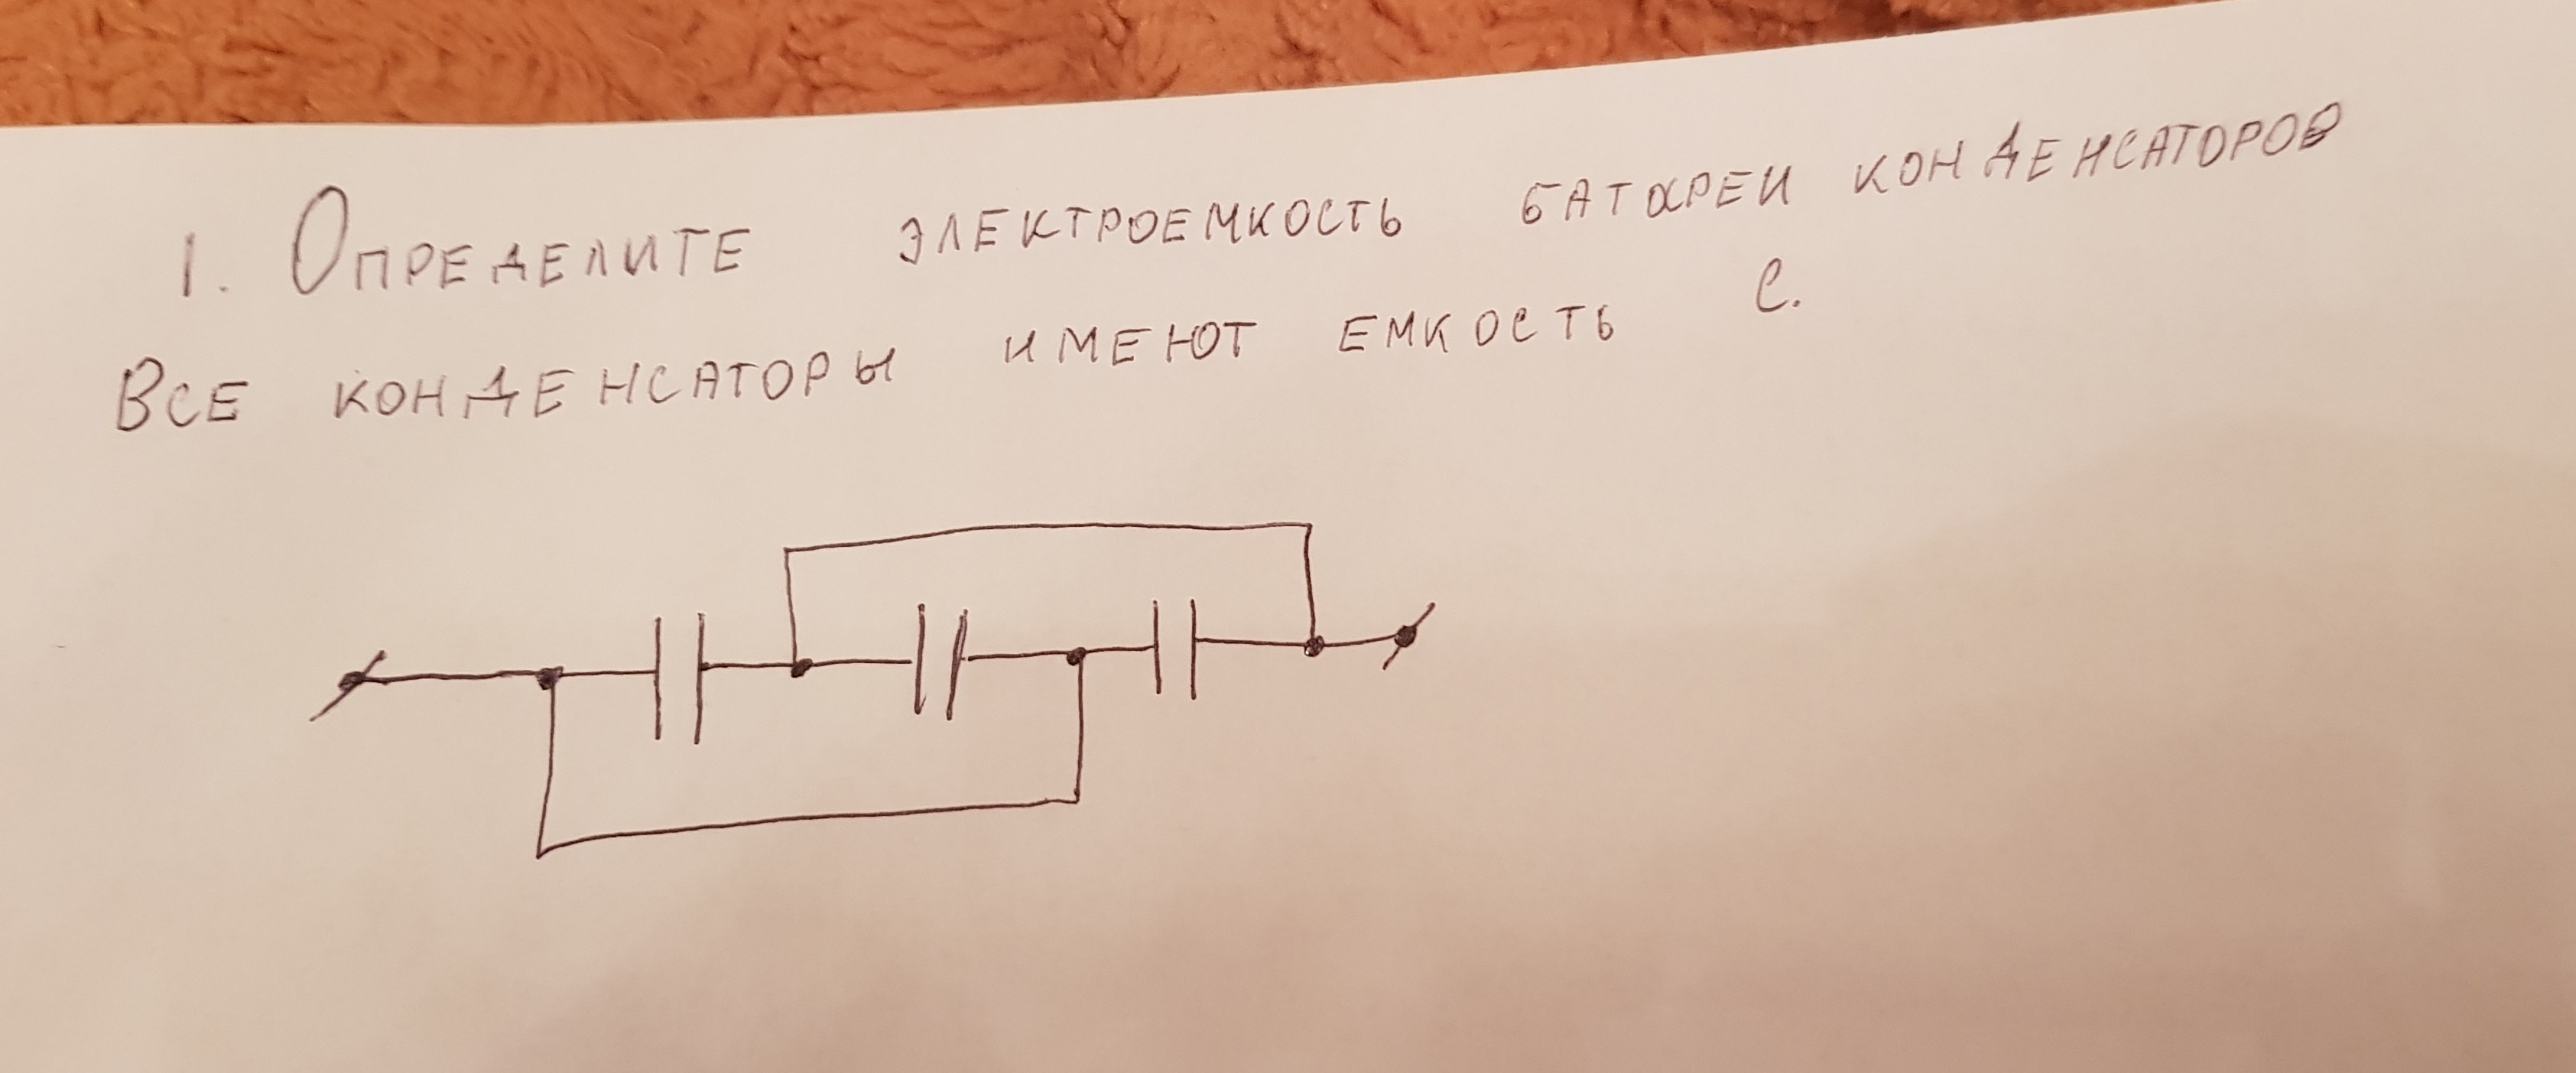 1. Определите электроемкость батареи конденсаторов
Все конденсаторы имеют емкость С.